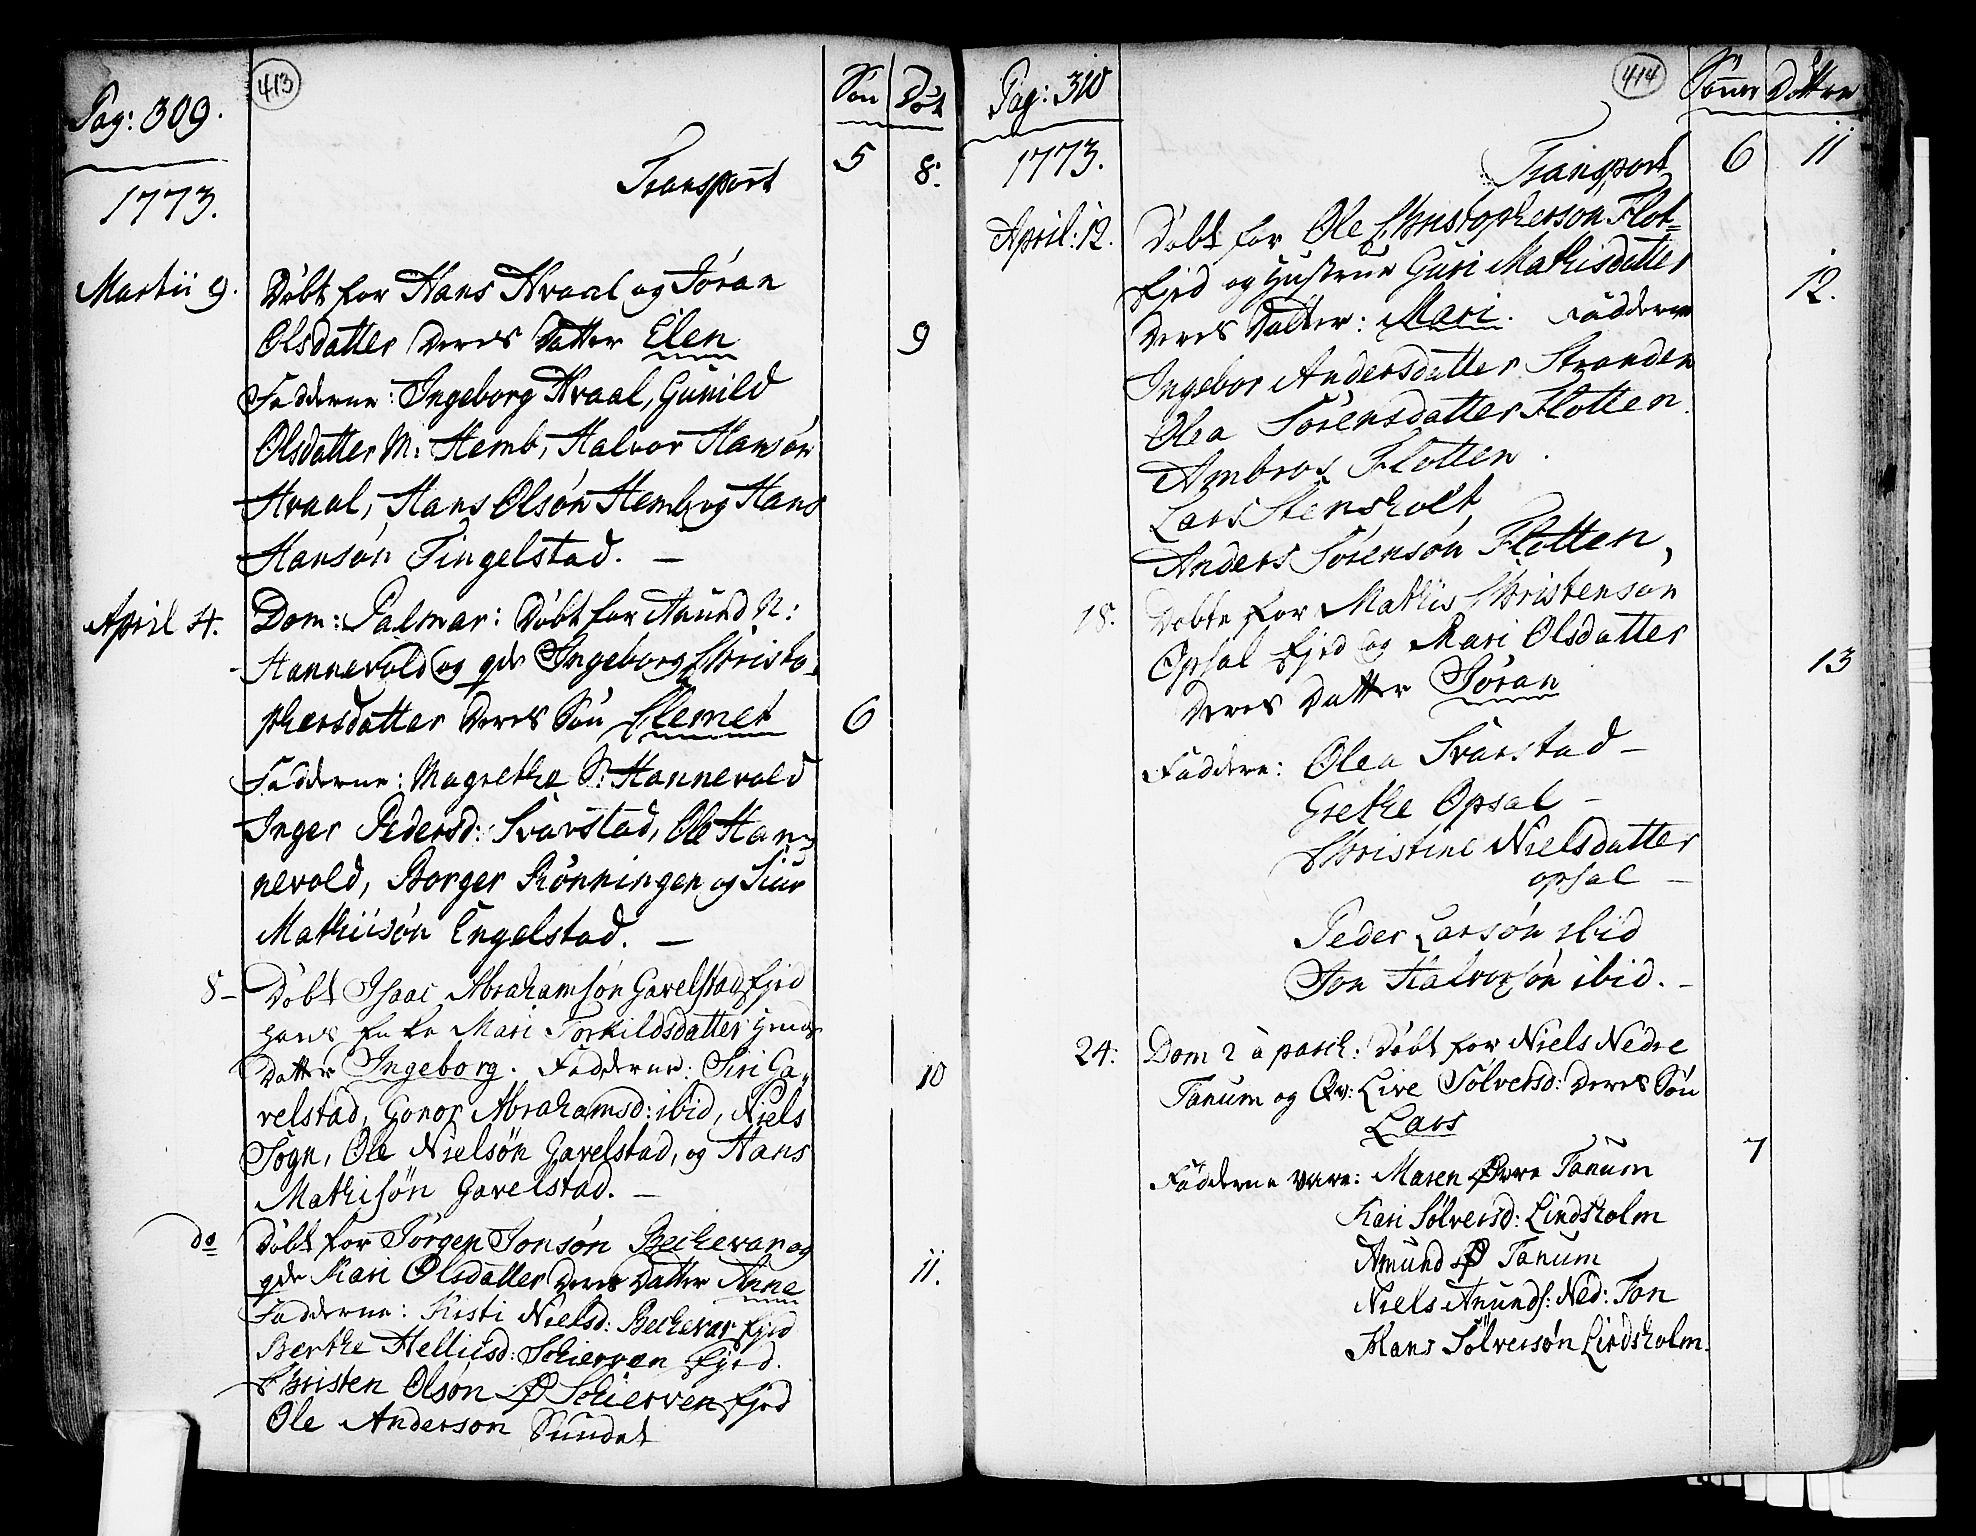 Pag: 309.
413
Søn Døt
1773.
Transport 5 8.
Martii 9. Døbt for Hans Hvaal og Jøran
Olsdatter Deres Datter Elen 9
Fadderne: Ingeborg Hvaal, Gunild
Olsdatter M: Hemb, Halvor Hansøn
Hvaal, Hans Olsøn Hemb og Hans
Hansøn Tingelstad. —
April 4. Dom: Palmar: Døbt for Anund N:
Hannevold og qde Ingeborg Christo-
phersdatter Deres Søn Clemet 6
Fadderne: Magrethe S: Hannevold
Inger Pedersd: Svarstad, Ole Han-
nevold, Borger Rønningen og Siur
Mathiisøn Engelstad. —
8 — Døbt Isaac Abrahamsøn Gavelstad fjrd
hans Enke Mari Torkildsdatter hendes
Datter Ingeborg. Fadderne: Siri Ga- 10
velstad, Gonor Abrahamsd: ibid, Niels
Sogn, Ole Nielsøn Gavelstad, og Hans
Mathisøn Gavelstad. —
do Døbt for Jørgen Jonsøn Bechevar og
qde Kari Olsdatter Deres Datter Anne 11.
Fadderne: Kisti Nielsd: Bechevar fjrd
Berthe Helliusd: Schierven fjrd.
Christen Olsøn Ø Schierven fjrd
Ole Anderson Sundet
Pag: 310
414
Sønner Døttre
1773.
Transport 6 11
April: 12. Døbt for Ole Christophersøn Flot-
fjrd og Hustrue Guri Mathisdatter 12.
Deres Datter: Mari. Fadderne
Ingebor Andersdatter Stranden
Olea Sørensdatter Flotten.
Ambros Flotten.
Lars Stensholt
Anders Sørensøn Flotten,
18. Døbte for Mathis Christensøn
Opsal fjrd og Mari Olsdatter 13
Deres Datter Jøran
Faddere: Olea Svarstad —
Grethe Opsal —
Christine Nielsdatter
opsal —
Peder Larsøn ibid
Jon Halvorsøn ibid. —
24: Dom 2 a pasch: Døbt for Niels Nedre
Tanum og Qv: Live Sølversd: Deres Søn
Lars 7
Fadderne vare: Maren Øvre Tanum
Kari Sølversd: Lindsholm
Amund Ø Tanum
Niels Anunds: Ned: Tan
Hans Sølversøn Lindsholm.